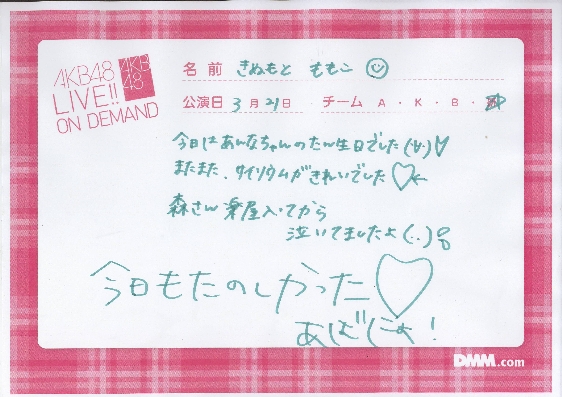 AKB48
LIVE!!
ON DEMAND
AKB
48
名前 きぬもと ももこ
公演日 3月21日 チーム A・K・B・
今日はあんなちゃんのたん生日でした(∀・)∀
またまた、サイリウムがきれいでした♡←
森さん楽屋入ってから
泣いてましたよ(:)
今日もたのしかった♡
あばにょ!
DMM.com